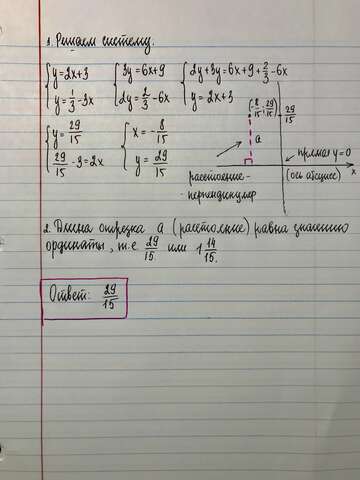 1. Решаем систему:
{y=2x+3 {3y=6x+9 {2y+3y=6x+9+2/3-6x
{y=1/3-3x {2y=2/3-6x {y=2x+3
{y=29/15 {x=-8/15
{29/15-3=2x {y=29/15
(-8/15; 29/15) 29/15
a
прямая y=0
(ось абсцисс) x
расстояние -
- перпендикуляр
2. Длина отрезка a (расстояние) равна значению
ординаты, т.е 29/15 или 1 14/15.
Ответ: 29/15